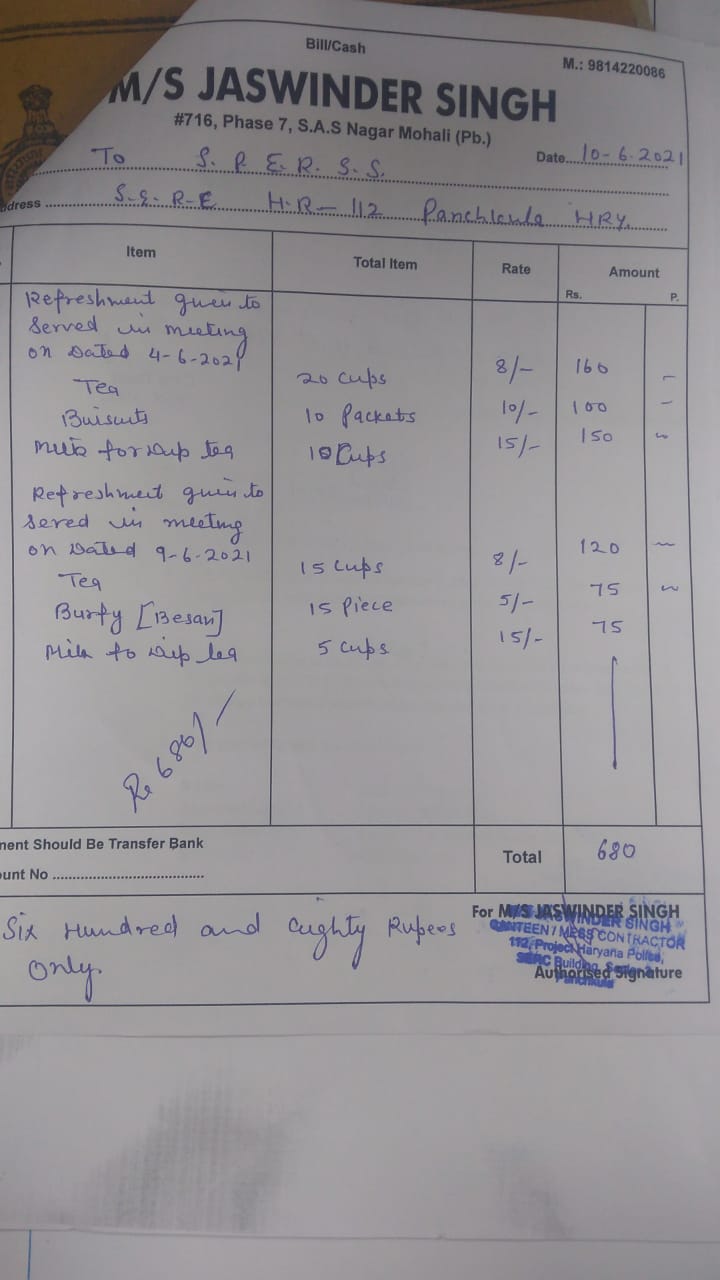 Bill/Cash
M.: 9814220086
M/S JASWINDER SINGH
#716, Phase 7, S.A.S Nagar Mohali (Pb.)
To S. P. E. R. S. S. Date....10-6.2021
dress S.S. R-E H.R-112 Panchkula HRY.
Item Total Item Rate Amount
Rs. P.
Refreshment
Served in meeting
on Dated 4-6-2021
Tea 20 Cups 8/- 160 -
Buisuits 10 Packets 10/- 100 -
Milk for tea 10 Cups 15/- 150
Refreshment
Sered in meeting
on Dated 9-6-2021
Tea 15 Cups 8/- 120
Burfy [Besan] 15 Piece 5/- 75
to tea 5 Cups 15/- 75
Rs 680/-
ment Should Be Transfer Bank
ount No ....................................... Total 680
Six Hundred and Eighty Rupees
Only
For M/S JASWINDER SINGH
JASWINDER SINGH
CANTEEN / MESS CONTRACTOR
112, Project Haryana Police,
SERC Building,
Panchkula
Authorised Signature